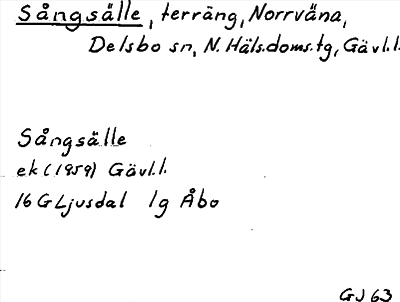 Sångsälle, terräng, Norrväna,
Delsbo sn, N. Häls.doms.tg, Gävl.l.
Sångsälle
ek (1959) Gävl.l.
16 G Ljusdal 1g Åbo
GJ 63